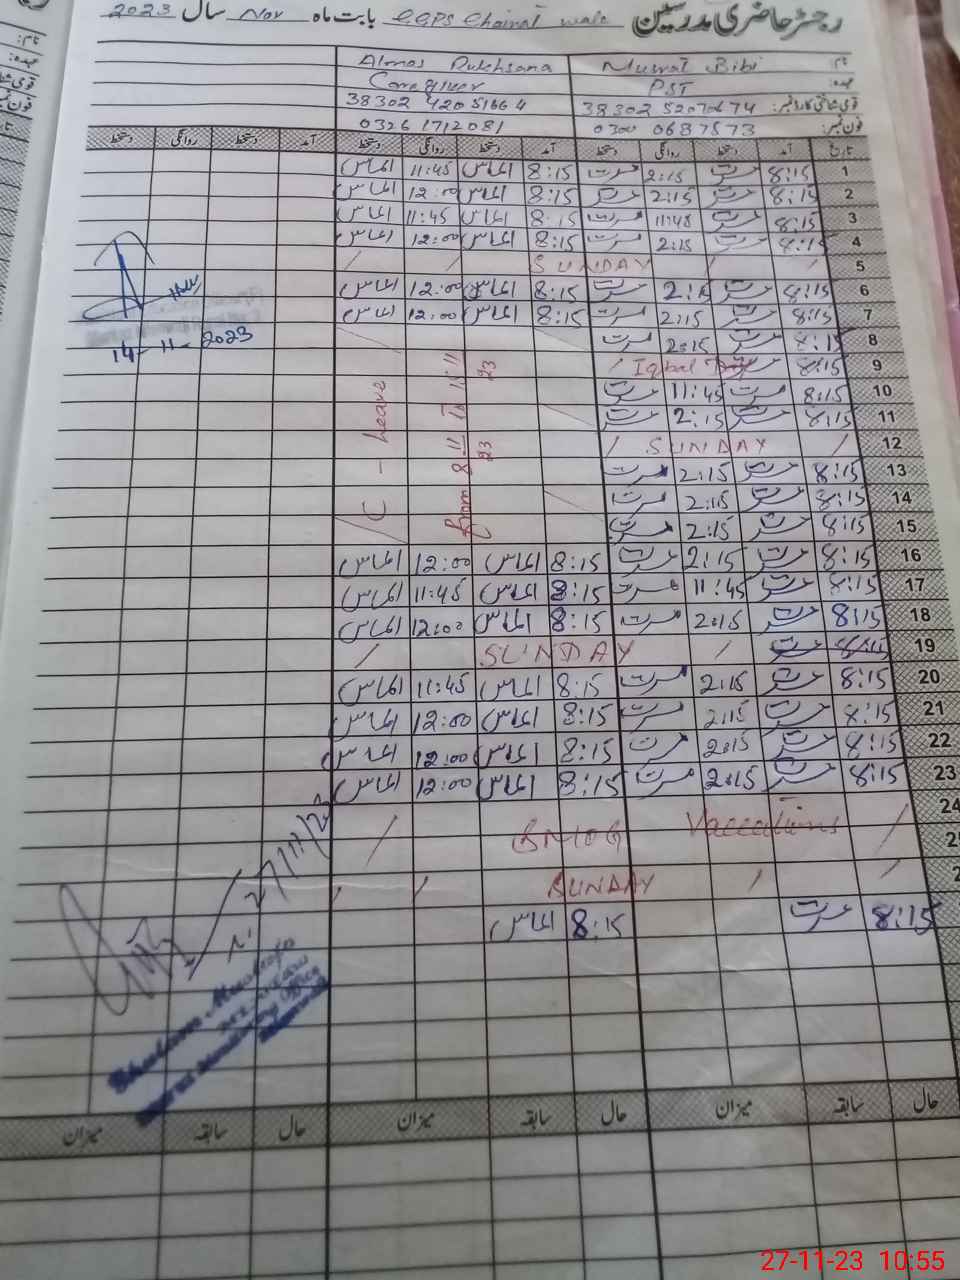 رجسٹر حاضری مدرسین GGPS Chainat wala بابت ماہ Nov سال 2023
نام: Musrat Bibi Almas Rukhsana
عہدہ: PST Caregiver
قومی شناختی کارڈ نمبر: 38302 5207067 4 38302 4205166 4
فون نمبر: 0300 0687573 0326 1712081
تاریخ آمد دستخط روانگی دستخط آمد دستخط روانگی دستخط آمد دستخط روانگی دستخط
1 8:15 مسرت 2:15 مسرت 8:15 الماس 11:45 الماس
2 8:15 مسرت 2:15 مسرت 8:15 الماس 12:00 الماس
3 8:15 مسرت 11:45 مسرت 8:15 الماس 11:45 الماس
4 8:15 مسرت 2:15 مسرت 8:15 الماس 12:00 الماس
5 / / SUNDAY / /
6 8:15 مسرت 2:15 مسرت 8:15 الماس 12:00 الماس
7 8:15 مسرت 2:15 مسرت 8:15 الماس 12:00 الماس
8 8:15 مسرت 2:15 مسرت
9 8:15 مسرت / Iqbal Day
10 8:15 مسرت 11:45 مسرت
11 8:15 مسرت 2:15 مسرت
12 / SUNDAY /
13 8:15 مسرت 2:15 مسرت
14 8:15 مسرت 2:15 مسرت
15 8:15 مسرت 2:15 مسرت
C - Leave
from 8-11-23 To 15-11-23
16 8:15 مسرت 2:15 مسرت 8:15 الماس 12:00 الماس
17 8:15 مسرت 11:45 مسرت 8:15 الماس 11:45 الماس
18 8:15 مسرت 2:15 مسرت 8:15 الماس 12:00 الماس
19 8:15 مسرت / SUNDAY /
20 8:15 مسرت 2:15 مسرت 8:15 الماس 11:45 الماس
21 8:15 مسرت 2:15 مسرت 8:15 الماس 12:00 الماس
22 8:15 مسرت 2:15 مسرت 8:15 الماس 12:00 الماس
23 8:15 مسرت 2:15 مسرت 8:15 الماس 12:00 الماس
24
25 / SMOG Vaccations /
2 / / SUNDAY / /
8:15 مسرت 8:15 الماس
14-11-2023
27/11/23
حال سابقہ میزان حال سابقہ میزان حال سابقہ میزان
27-11-23 10:55